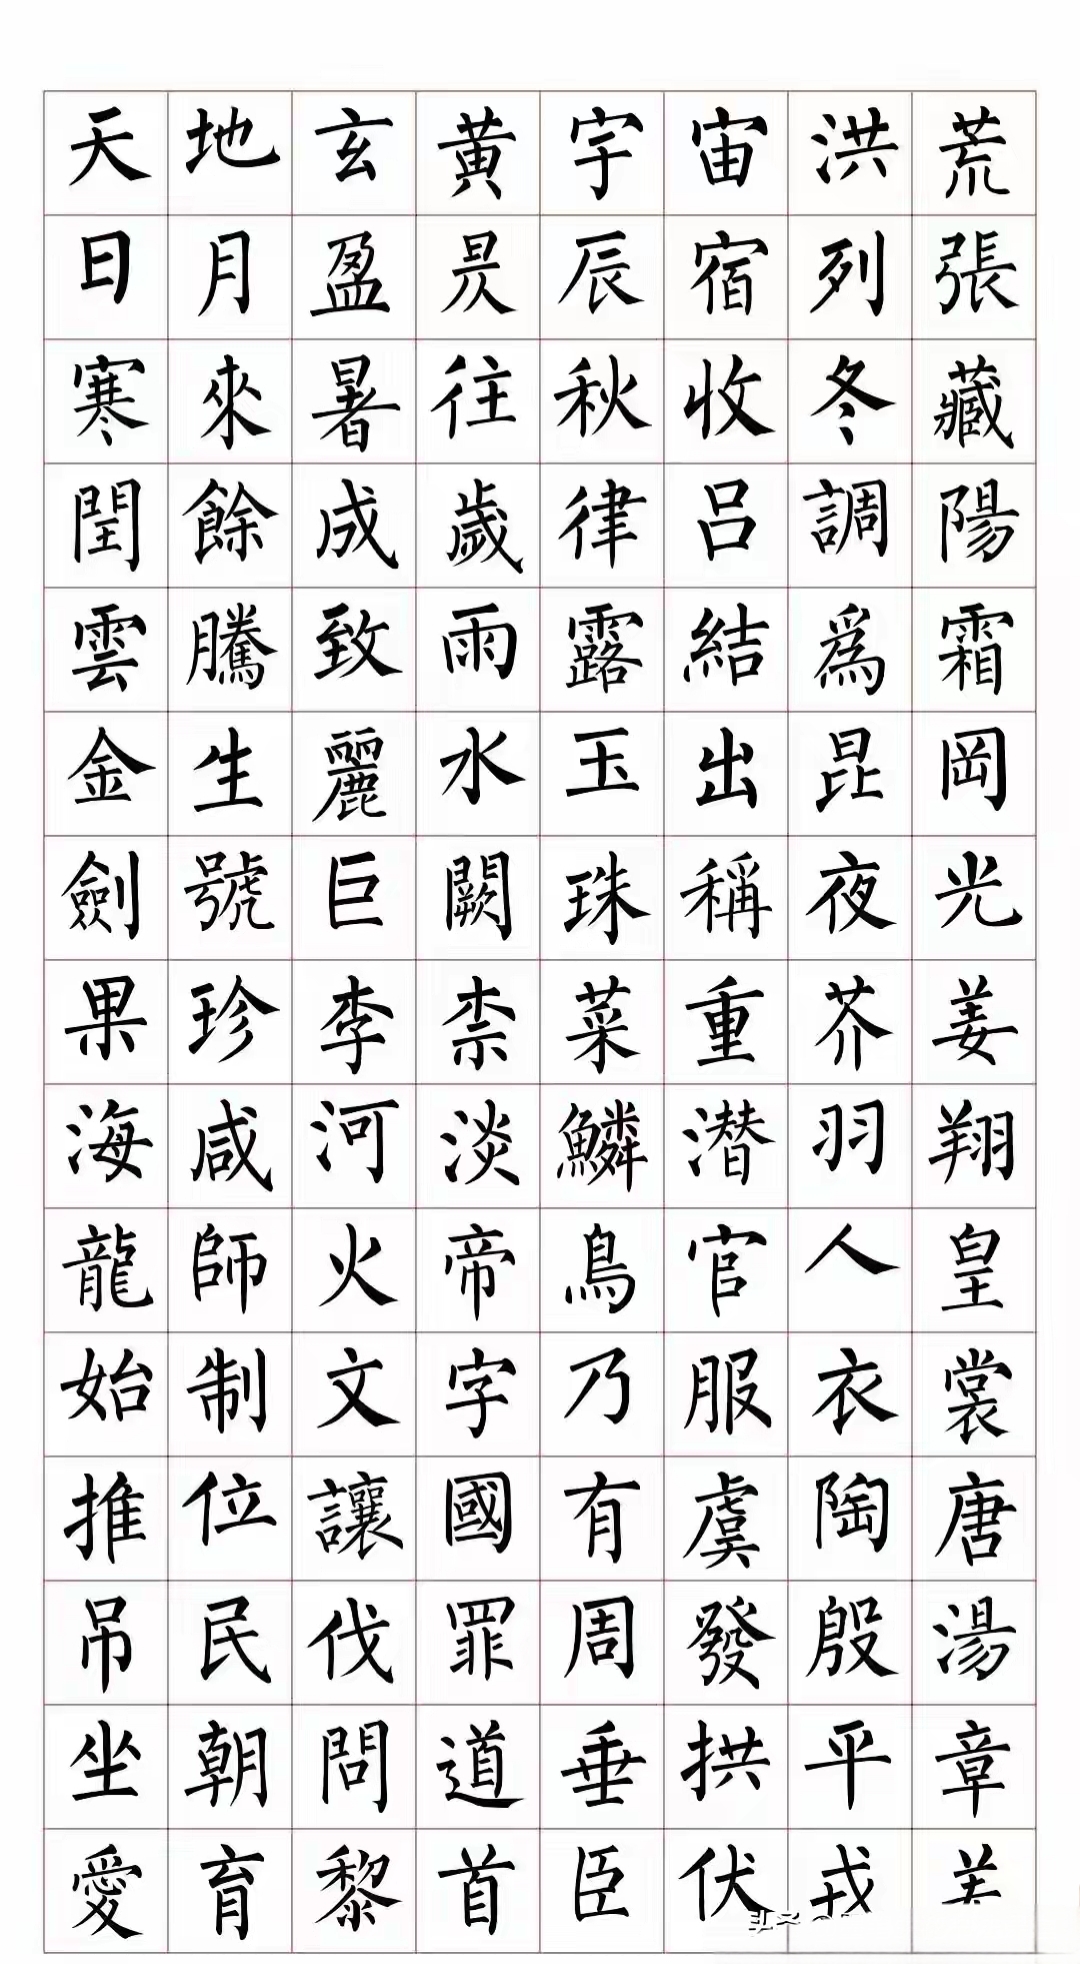 天地玄黄宇宙洪荒
日月盈昃辰宿列張
寒來暑往秋收冬藏
閏餘成歲律吕調陽
雲騰致雨露結爲霜
金生麗水玉出昆岡
劍號巨闕珠稱夜光
果珍李柰菜重芥姜
海咸河淡鱗潜羽翔
龍師火帝鳥官人皇
始制文字乃服衣裳
推位讓國有虞陶唐
吊民伐罪周發殷湯
坐朝問道垂拱平章
愛育黎首臣伏戎